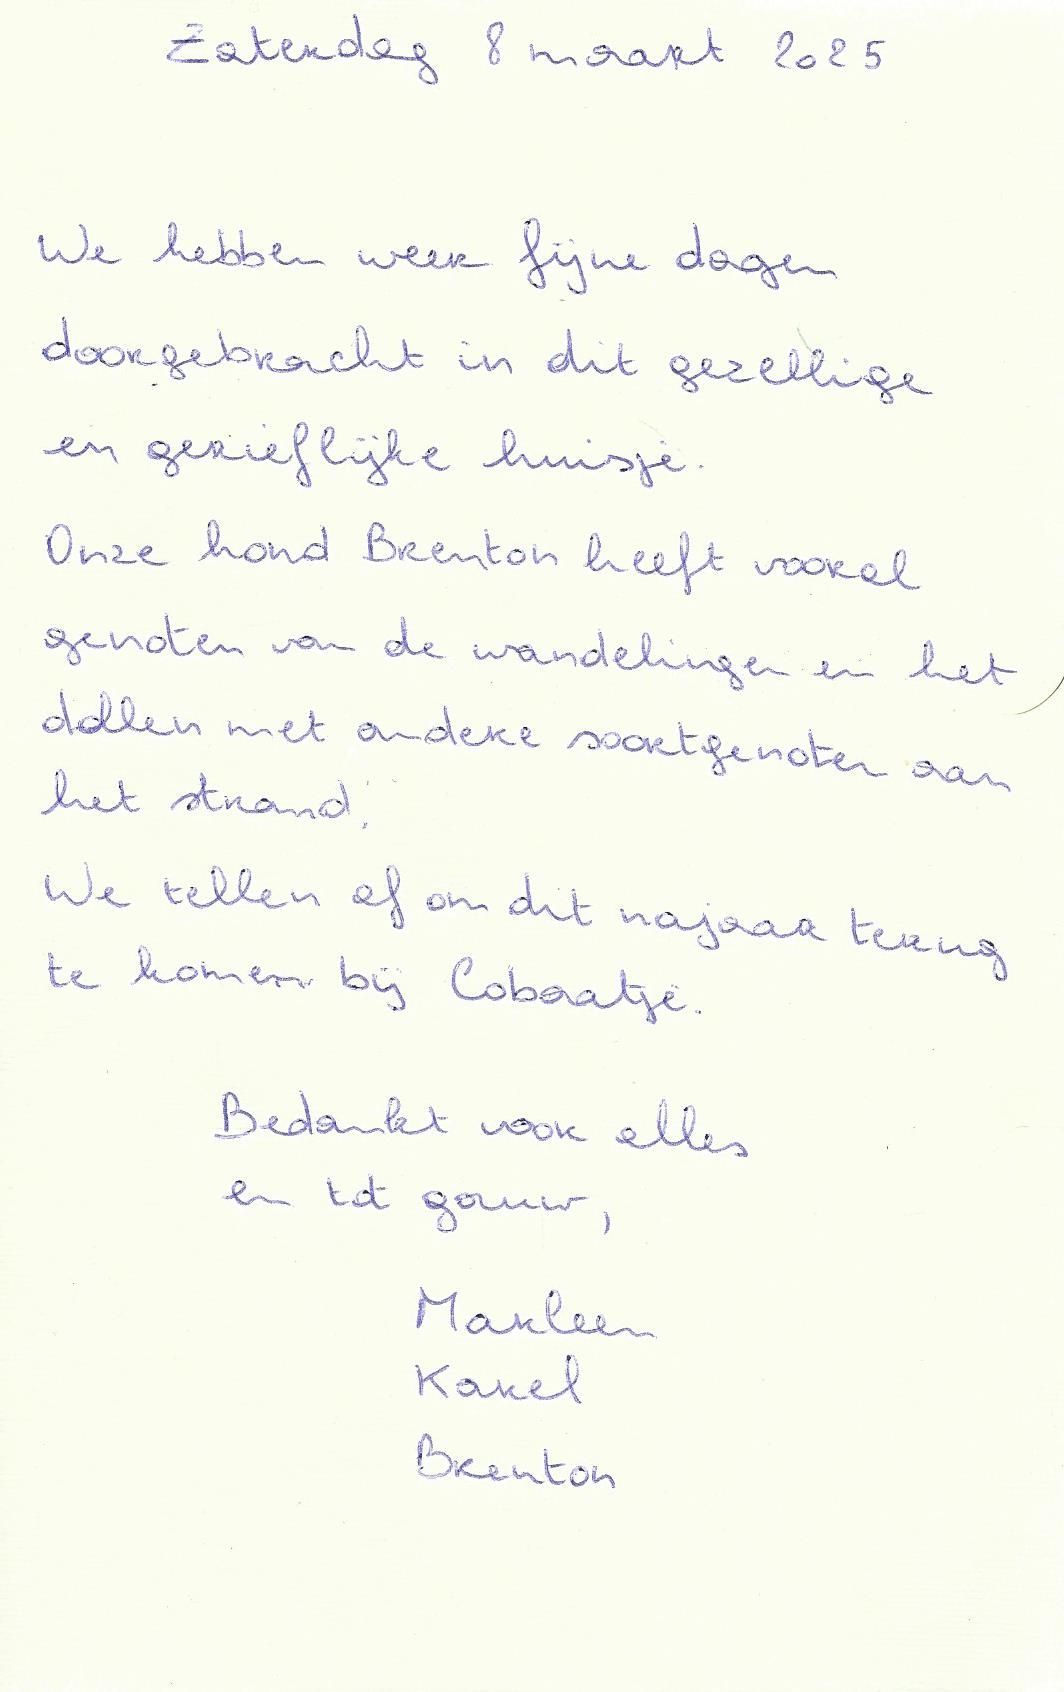 Zaterdag 8 maart 2025
We hebben weer fijne dagen
doorgebracht in dit gezellige
en gerieflijke huisje.
Onze hond Brenton heeft vooral
genoten van de wandelingen en het
dollen met andere soortgenoten aan
het strand.
We tellen af om dit najaar terug
te komen bij Cobaatje.
Bedankt voor alles
en tot gauw,
Marleen
Karel
Brenton